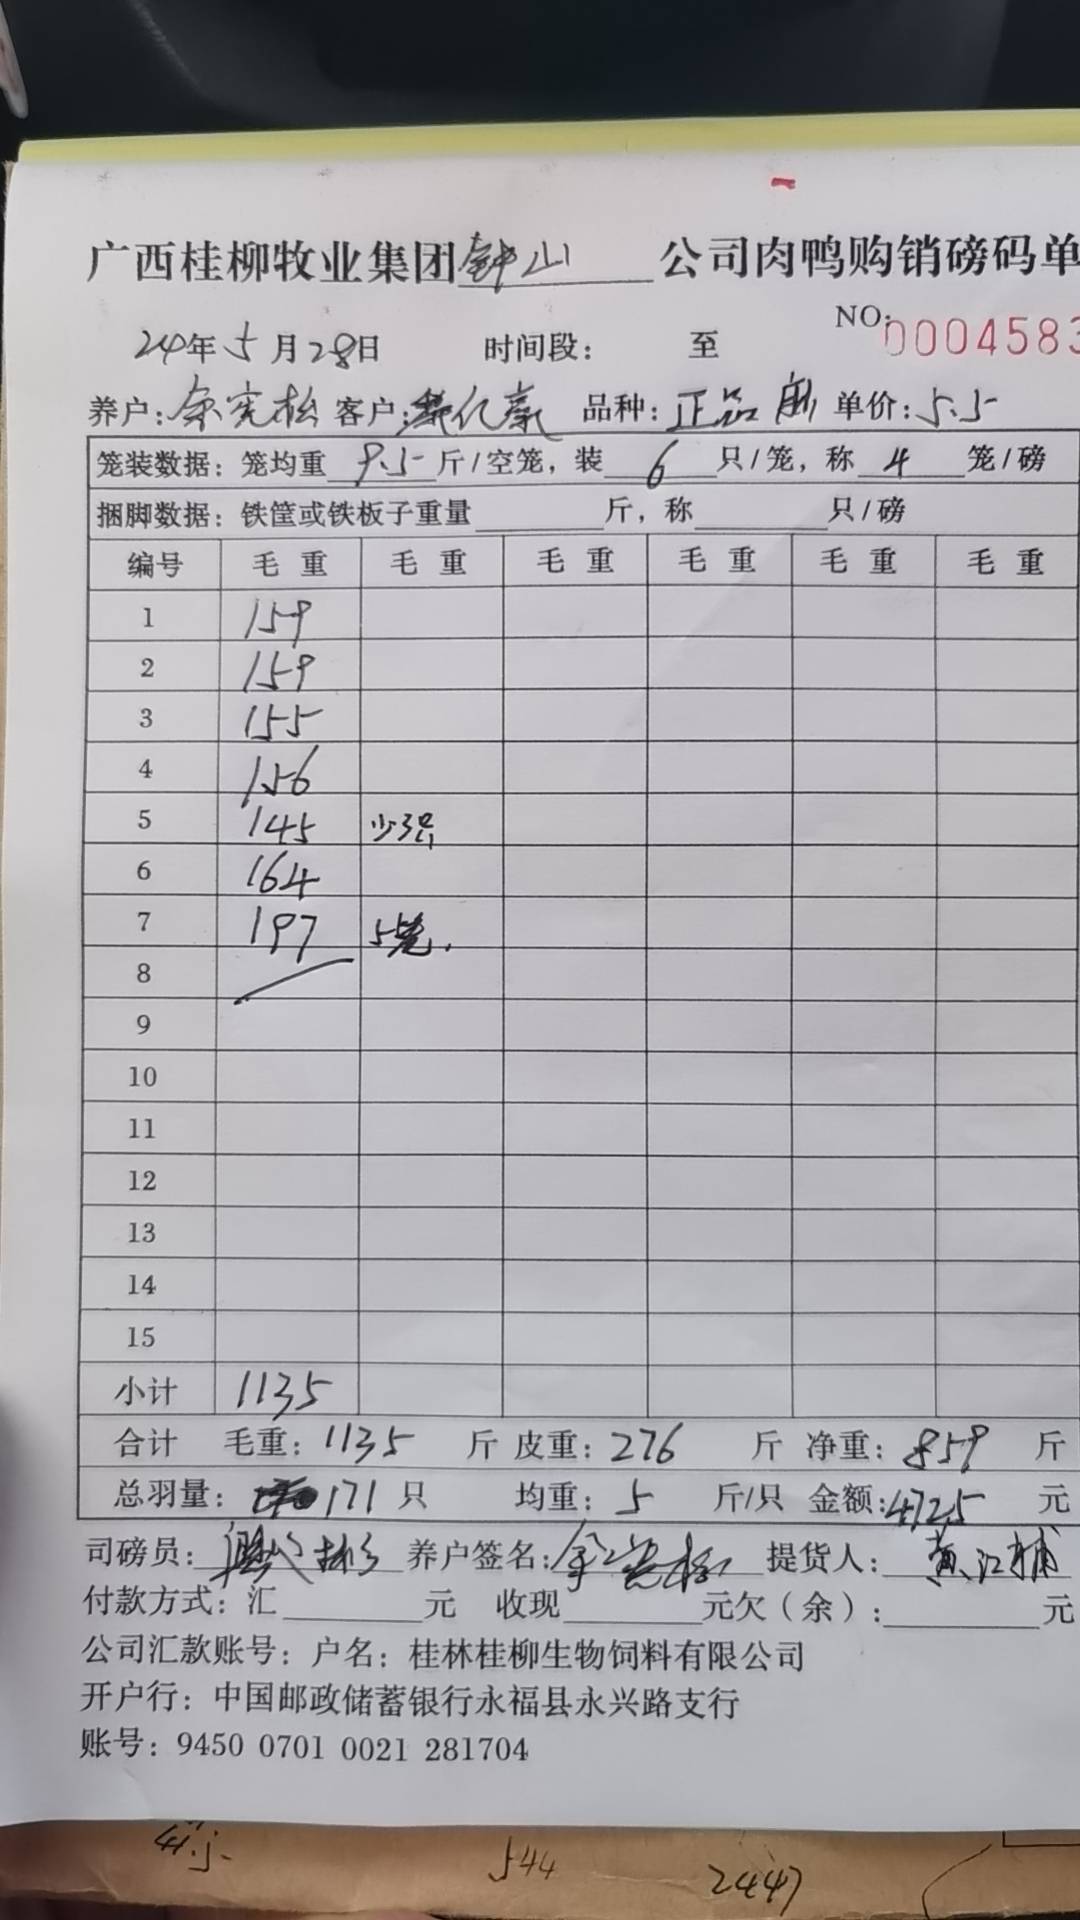 广西桂柳牧业集团钟山 公司肉鸭购销磅码单
NO:0004583
24年5月28日 时间段: 至
养户:余宪松 客户: 品种:正品 单价:5.5
笼装数据:笼均重 9.5 斤/空笼,装 6 只/笼,称 4 笼/磅
捆脚数据:铁筐或铁板子重量 斤,称 只/磅
编号 毛重 毛重 毛重 毛重 毛重 毛重
1 159
2 159
3 155
4 156
5 145 少3只
6 164
7 197 5笼.
8
9
10
11
12
13
14
15
小计 1135
合计 毛重:1135 斤 皮重:276 斤 净重:859 斤
总羽量: 171 只 均重:5 斤/只 金额:4725 元
司磅员: 养户签名:余宪松 提货人:黄江辅
付款方式:汇 元 收现 元欠(余): 元
公司汇款账号:户名:桂林桂柳生物饲料有限公司
开户行:中国邮政储蓄银行永福县永兴路支行
账号:9450 0701 0021 281704
544 2447